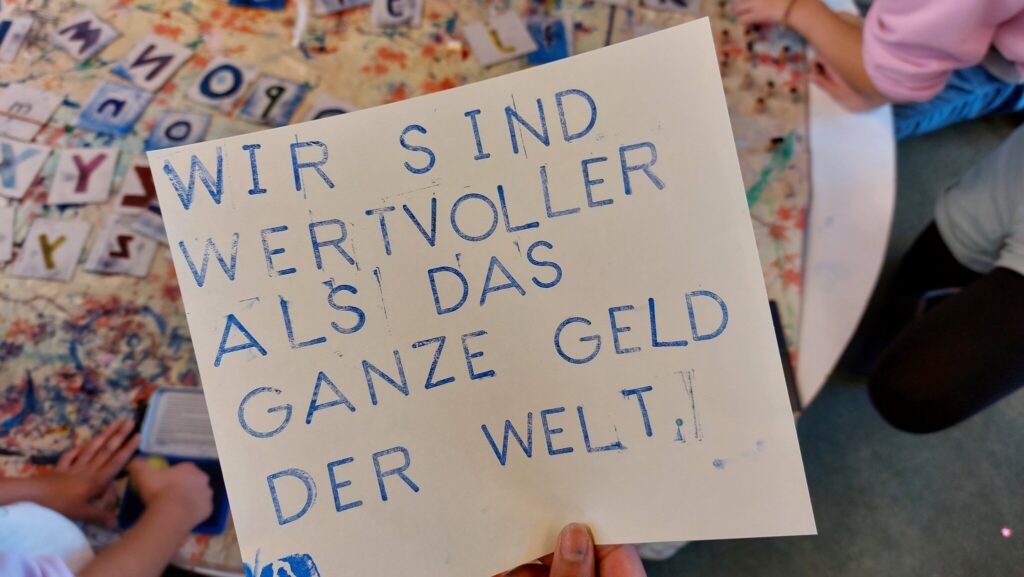 WIR SIND
WERTVOLLER
ALS DAS
GANZE GELD
DER WELT.!
M
N
m
n
O
o
P
q
X
Y
Y
S